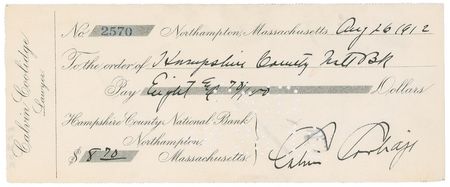 No 2570 Northampton, Massachusetts Aug 26 1912
To the order of Hampshire County Natl Bk
Pay Eight & 70/100 Dollars
Hampshire County National Bank
Northampton,
Massachusetts
$ 8 70
Calvin Coolidge
Calvin Coolidge
Lawyer